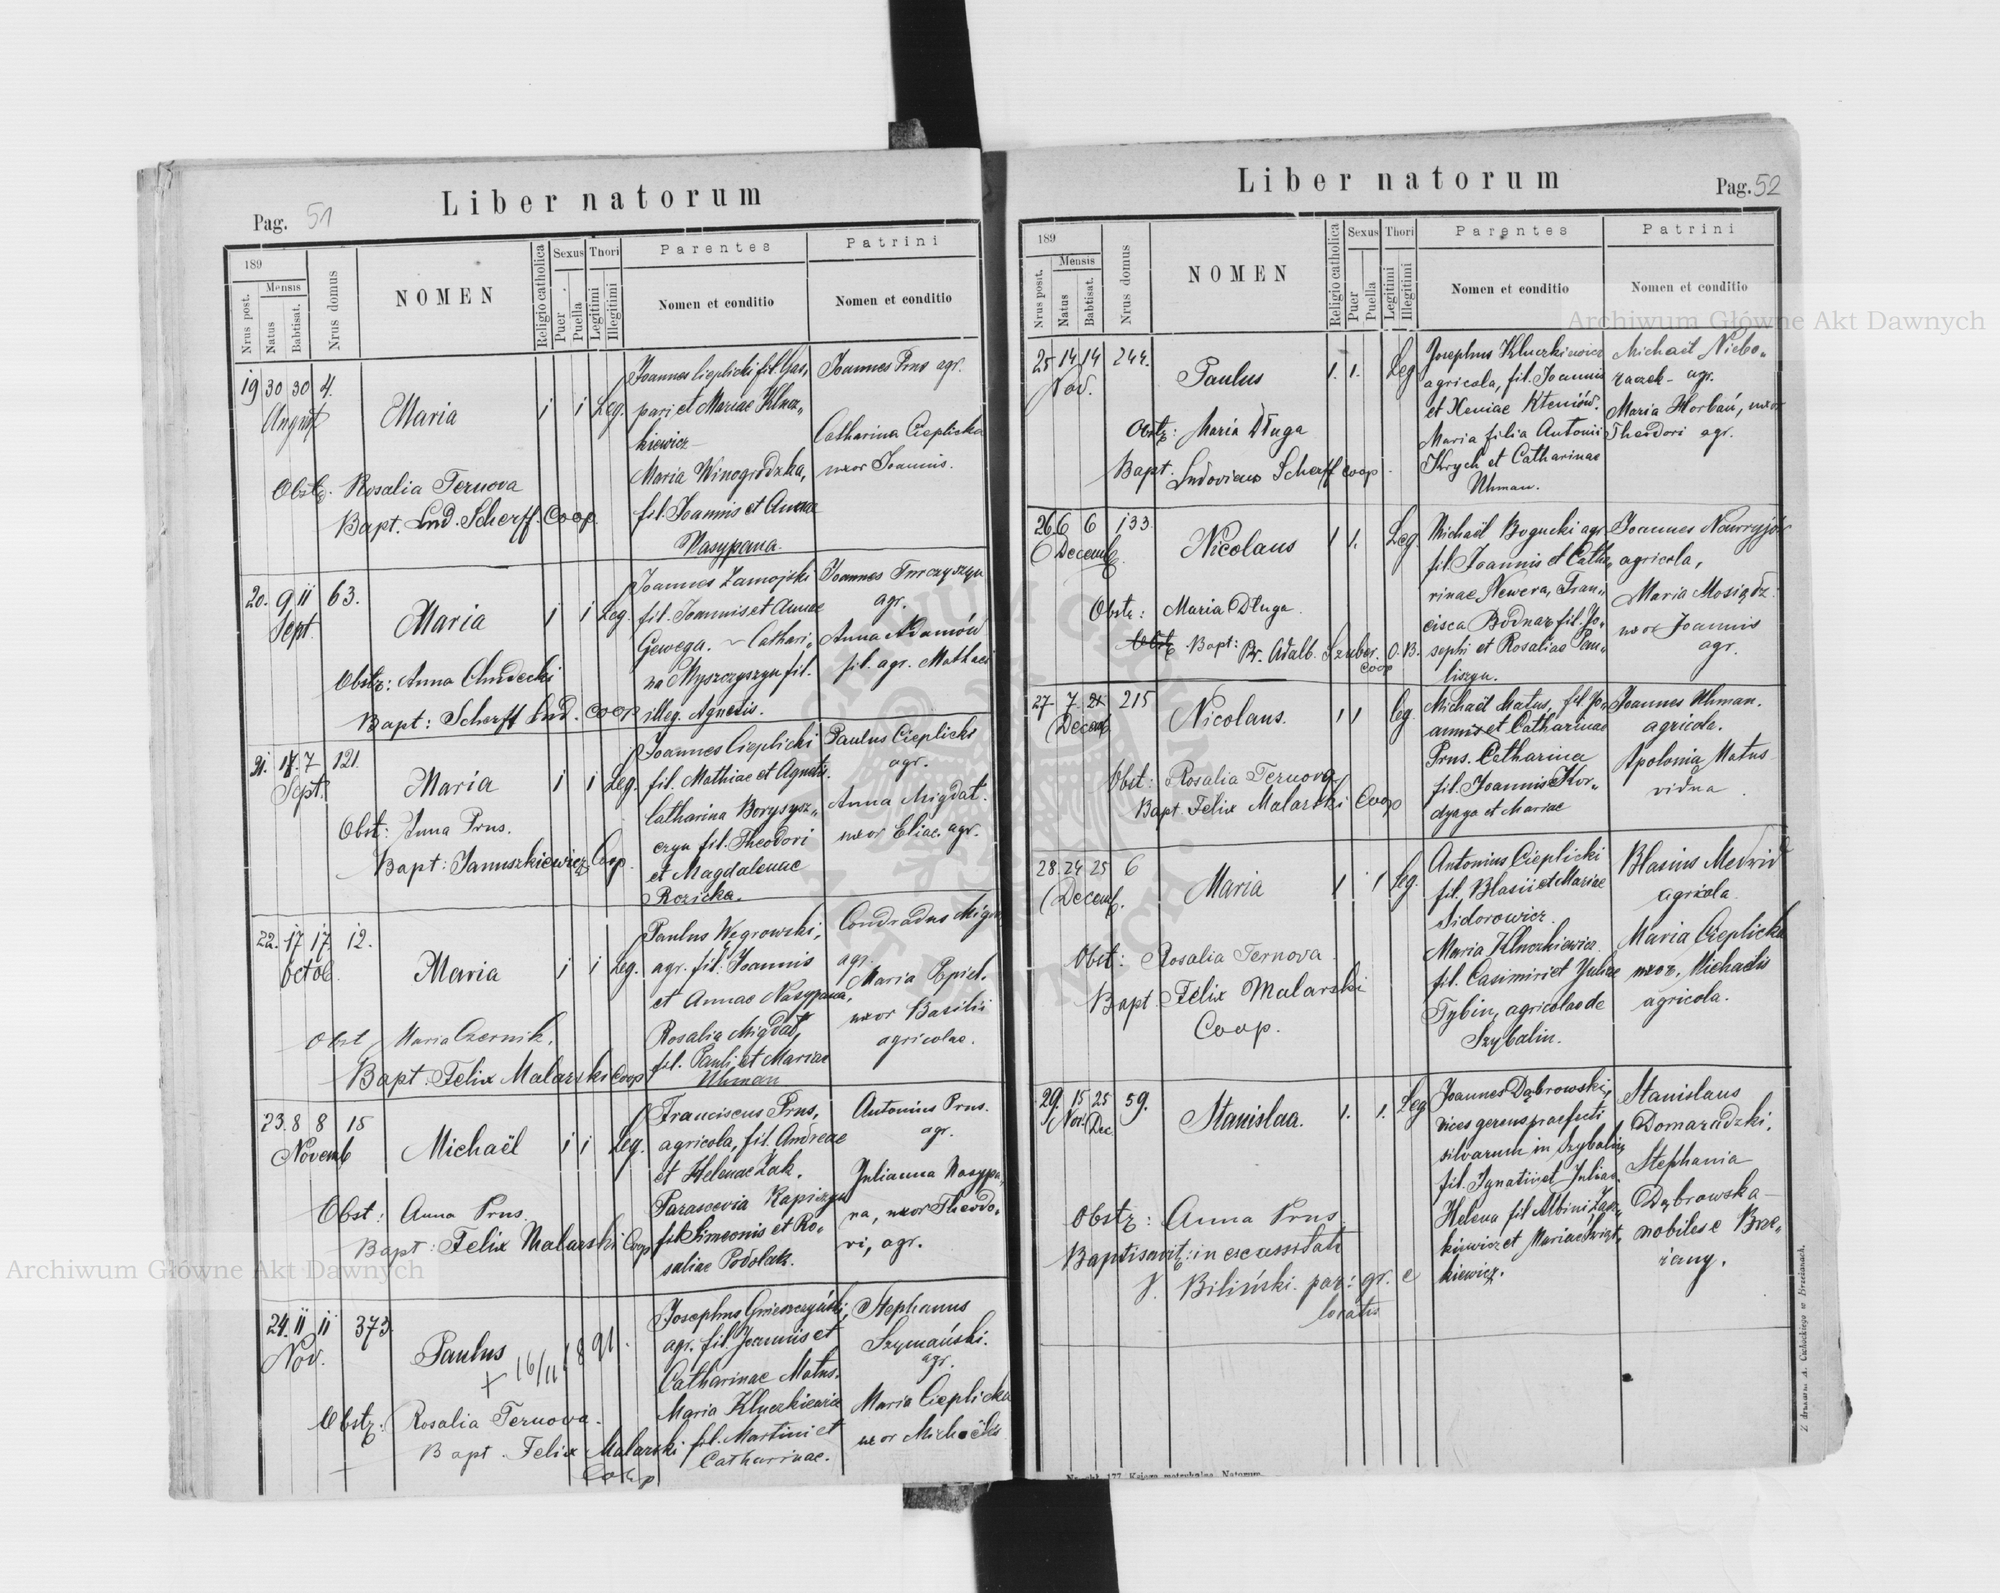 Liber natorum
Pag. 51
189
Nrus post.
Mensis
Natus
Babtisat.
Nrus domus
NOMEN
Religio catholica
Sexus
Puer
Puella
Thori
Legitimi
Illegitimi
Parentes
Nomen et conditio
Patrini
Nomen et conditio
19 30 30 4.
August
Maria
1 1 Leg.
Obstz. Rosalia Ternova
Bapt. Lud. Scherff. Coop.
Joannes Cieplicki fil. Gas,
pari et Mariae Klucz„
kiewicz
Maria Winogrodzka,
fil. Joannis et Annae
Nasypana.
Joannes Prus agr.
Catharina Cieplicka
uxor Joannis.
20. 9 11 63.
Sept.
Maria
1 1 Leg.
Obstz: Anna Chudecki
Bapt: Scherff Lud. Coop
Joannes Zamojski
fil. Joannis et Annae
Gewega. ~ Cathari„
na Myszczyszyn fil.
illeg. Agnetis.
Joannes Turczyszyn
agr.
Anna Adamów
fil. agr. Mathaei
21. 7 121.
Sept.
Maria
1 1 Leg.
Obst: Anna Prus.
Bapt: Januszkiewicz Coop.
Joannes Cieplicki
fil. Mathiae et Agnetis.
Catharina Borysysz„
czyn fil. Theodori
et Magdalenae
Rozicka.
Paulus Cieplicki
agr.
Anna Migdał.
uxor Eliae agr.
22. 17 17 12.
Octob.
Maria
1 1 Leg.
Obst Maria Czernik.
Bapt. Felix Malarski Coop
Paulus Węgrowski,
agr. fil. Joannis
et Annae Nasypana,
Rosalia Migdał,
fil. Pauli et Mariae
Uhman
Condradus
agr.
Maria
uxor Basilii
agricolae.
23. 8 8 15
Novemb
Michaël
1 1 Leg.
Obst: Anna Prus.
Bapt: Felix Malarski Coop
Franciscus Prus,
agricola, fil. Andreae
et Helenae Zak.
Parascevia Kapiczyn
fil. Simeonis et Ro„
saliae Podolak.
Antonius Prus.
agr.
Julianna Nasypa„
na, uxor Theodo„
ri, agr.
24. 11 11 373
Nov.
Paulus
+ 16/11 1891.
Obstz: Rosalia Ternova.
Bapt. Felix Malarski
Coop
Josephus
agr. fil. Joannis et
Catharinae Matus.
Maria Kluczkiewicz
fil. Martini et
Catharinae.
Stephanus
Szymański.
agr.
Maria Cieplicka
uxor Michaëlis
Liber natorum
Pag. 52
189
Nrus post.
Mensis
Natus
Babtisat.
Nrus domus
NOMEN
Religio catholica
Sexus
Puer
Puella
Thori
Legitimi
Illegitimi
Parentes
Nomen et conditio
Patrini
Nomen et conditio
25 14 14 244.
Nov.
Paulus
1. 1. Leg
Obstz: Maria Długa
Bapt. Ludovicus Scherff Coop.
Josephus Kluczkiewicz
agricola, fil. Joannis
et Xeniae Kteniów.
Maria filia Antonii
Krych et Catharinae
Uhman.
Michaël Niebo„
raczek - agr.
Maria Horbań, uxor
Theodori agr.
26. 6 6 133.
Decemb.
Nicolaus
1 1. Leg.
Obstz: Maria Długa.
Bapt: Br. Adalb. Szuber. O.B.
Coop
Michaël Bogucki agr
fil. Joannis et Catha„
rinae Newera, Fran„
cisca Bodnar fil. Jo„
sephi et Rosaliae Paw„
liszyn.
Joannes
agricola,
Maria Mosiądz
uxor Joannis
agr.
27 7. 21 215
Decemb.
Nicolaus.
1 1 Leg.
Obst: Rosalia Ternova
Bapt. Felix Malarski Coop
Michaël Matus, fil. Jo„
annis et Catharinae
Prus. Catharina
fil. Joannis Kor„
dyaga et Mariae
Joannes Uhman.
agricola.
Apolonia Matus
vidua.
28. 24 25 6
Decemb.
Maria
1 1 Leg.
Obst: Rosalia Ternova.
Bapt. Felix Malarski
Coop.
Antonius Cieplicki
fil. Blasii et Mariae
Sidorowicz.
Maria Kluczkiewicz.
fil. Casimiri et Juliae
Tybin, agricolae de
Szybalin.
Blasius Medwid
agricola.
Maria Cieplicka
uxor. Michaelis
agricola.
29. 15 25 59.
Nov. Dec
Stanislaa.
1. 1. Leg
Obstz: Anna Prus
Baptisavit: in necessitate
J. Biliński. par: gr. c
locatis
Joannes Dąbrowski,
vices gerens praefecti
silvarum in Szybalin,
fil. Ignatii et Juliae.
Helena fil Albini Zak„
kiewicz et Mariae
kiewicz.
Stanislaus
Domaradzki.
Stephania
Dąbrowska -
nobiles e Brze„
żany.
Nr. skł. 177. Księga metrykalna. Natorum.
Z drukarni A. Cichockiego w Brzeżanach.
Archiwum Główne Akt Dawnych
Archiwum Główne Akt Dawnych